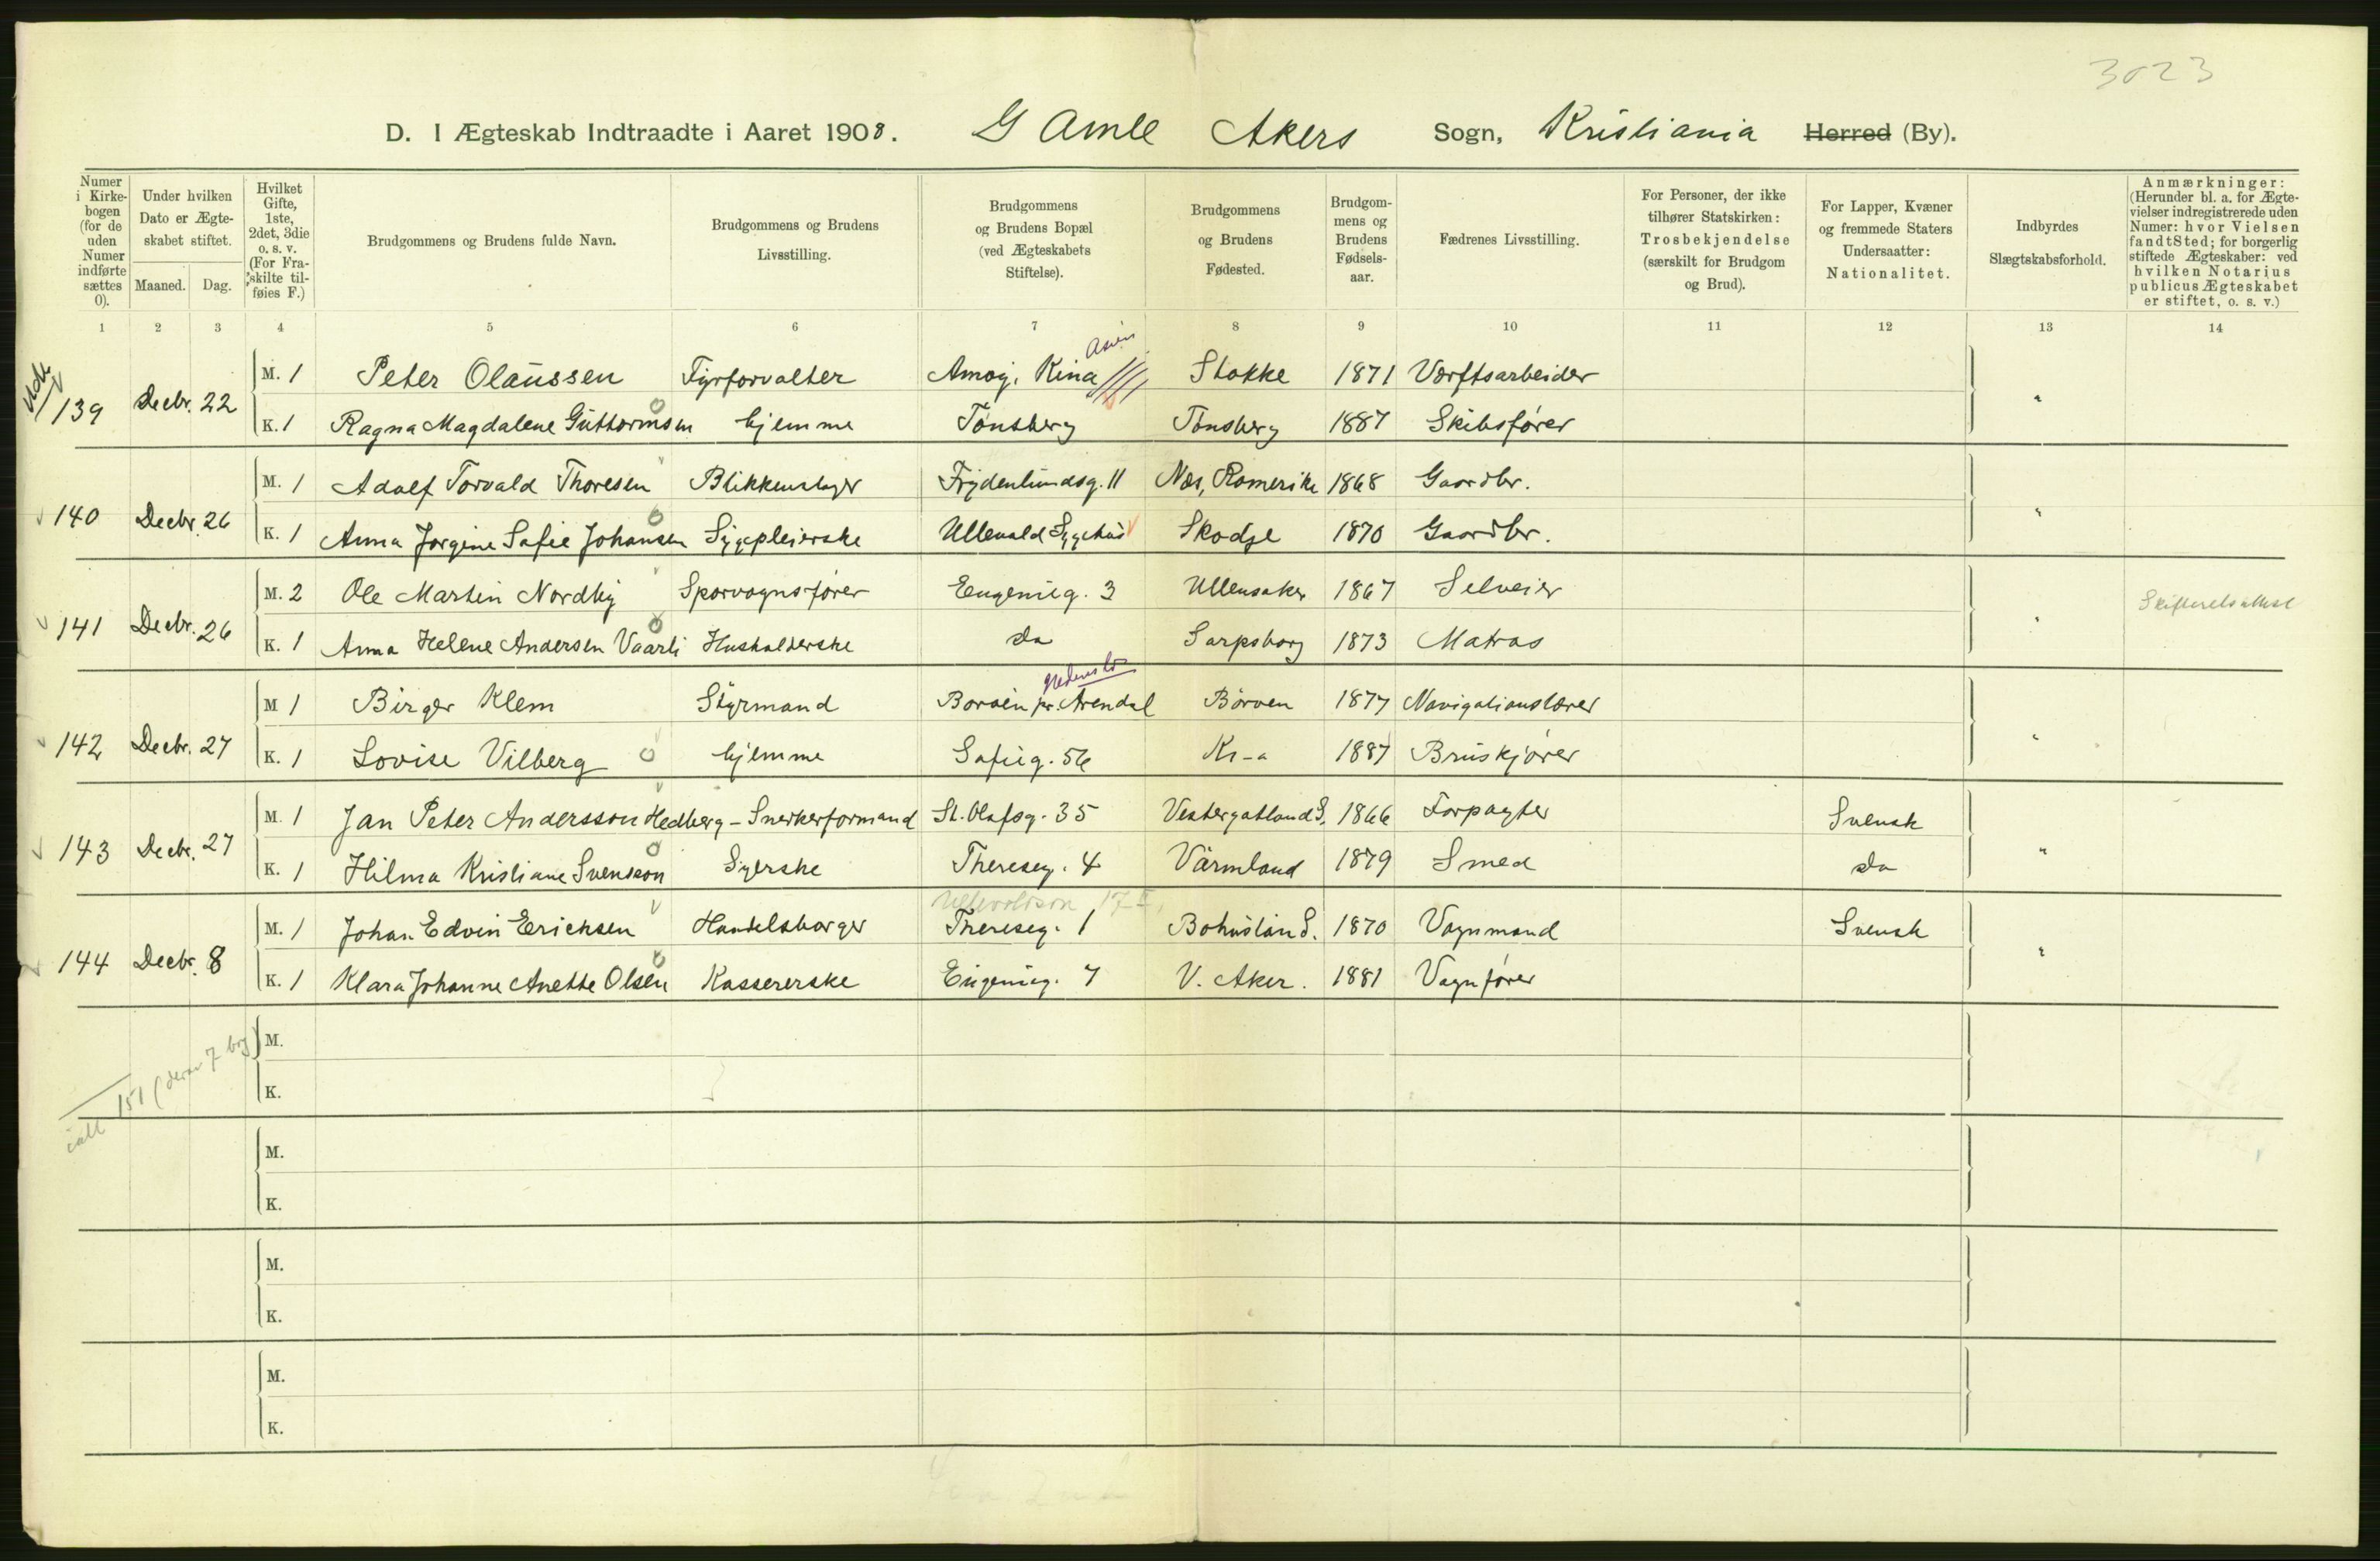 3023
D. I Ægteskab Indtraadte i Aaret 1908. Gamle Akers Sogn, Kristiania Herred (By).
Numer i Kirkebogen (for de uden Numer indførte sættes 0).
Under hvilken Dato er Ægteskabet stiftet. Maaned. Dag.
Hvilket Gifte, 1ste, 2det, 3die o. s. v. (For Fraskilte tilføies F.)
Brudgommens og Brudens fulde Navn.
Brudgommens og Brudens Livsstilling.
Brudgommens og Brudens Bopæl (ved Ægteskabets Stiftelse).
Brudgommens og Brudens Fødested.
Brudgommens og Brudens Fødselsaar.
Fædrenes Livsstilling.
For Personer, der ikke tilhører Statskirken: Trosbekjendelse (særskilt for Brudgom og Brud).
For Lapper, Kvæner og fremmede Staters Undersaatter: Nationalitet.
Indbyrdes Slægtskabsforhold.
Anmærkninger: (Herunder bl. a. for Ægtevielser indregistrerede uden Numer: hvor Vielsen fandt Sted; for borgerlig stiftede Ægteskaber: ved hvilken Notarius publicus Ægteskabet er stiftet, o. s. v.)
1 2 3 4 5 6 7 8 9 10 11 12 13 14
Asien
M. 1 Peter Olaussen Fyrforvalter Amoy, Kina Stokke 1871 Værftsarbeider
139 Decbr. 22 "
K. 1 Ragna Magdalene Guttormsen hjemme Tønsberg Tønsberg 1887 Skibsfører
M. 1 Adolf Torvald Thoresen Blikkenslager Frydenlundsg. 11 Næs, Romerike 1868 Gaardbr.
140 Decbr. 26 "
K. 1 Anna Jørgine Sofie Johansen Sygepleierske Ullevald Sygehus Skodje 1870 Gaardbr.
M. 2 Ole Martin Nordby Sporvognsfører Eugenieg. 3 Ullensaker 1867 Selveier
141 Decbr. 26 " Skifteretsattest
K. 1 Anna Helene Andersen Vaarli Husholderske do Sarpsborg 1873 Matros
M 1 Birger Klem Styrmand Borøen pr. Arendal Borøen 1877 Navigationslærer
142 Decbr. 27 "
K. 1 Lovise Vilberg hjemme Sofieg. 56 Kr-a 1887 Bruskjører
M. 1 Jan Peter Andersson Hedberg - Snekkerformand St. Olafsg. 35 Vestergøtland S. 1866 Forpagter Svensk
143 Decbr. 27 "
K. 1 Hilma Kristiane Svensson Syerske Thereseg. 4 Värmland 1879 Smed do
M. 1 Johan Edvin Erichsen Handelsborger Thereseg. 1 Bohuslän S. 1870 Vognmand Svensk
144 Decbr. 8 "
K. 1 Klara Johanne Anette Olsen Kassererske Eugenieg. 7 V. Aker. 1881 Vognfører
M.
ialt 151 (derav 7 brg)
K.
M.
K.
M.
K.
M.
K.